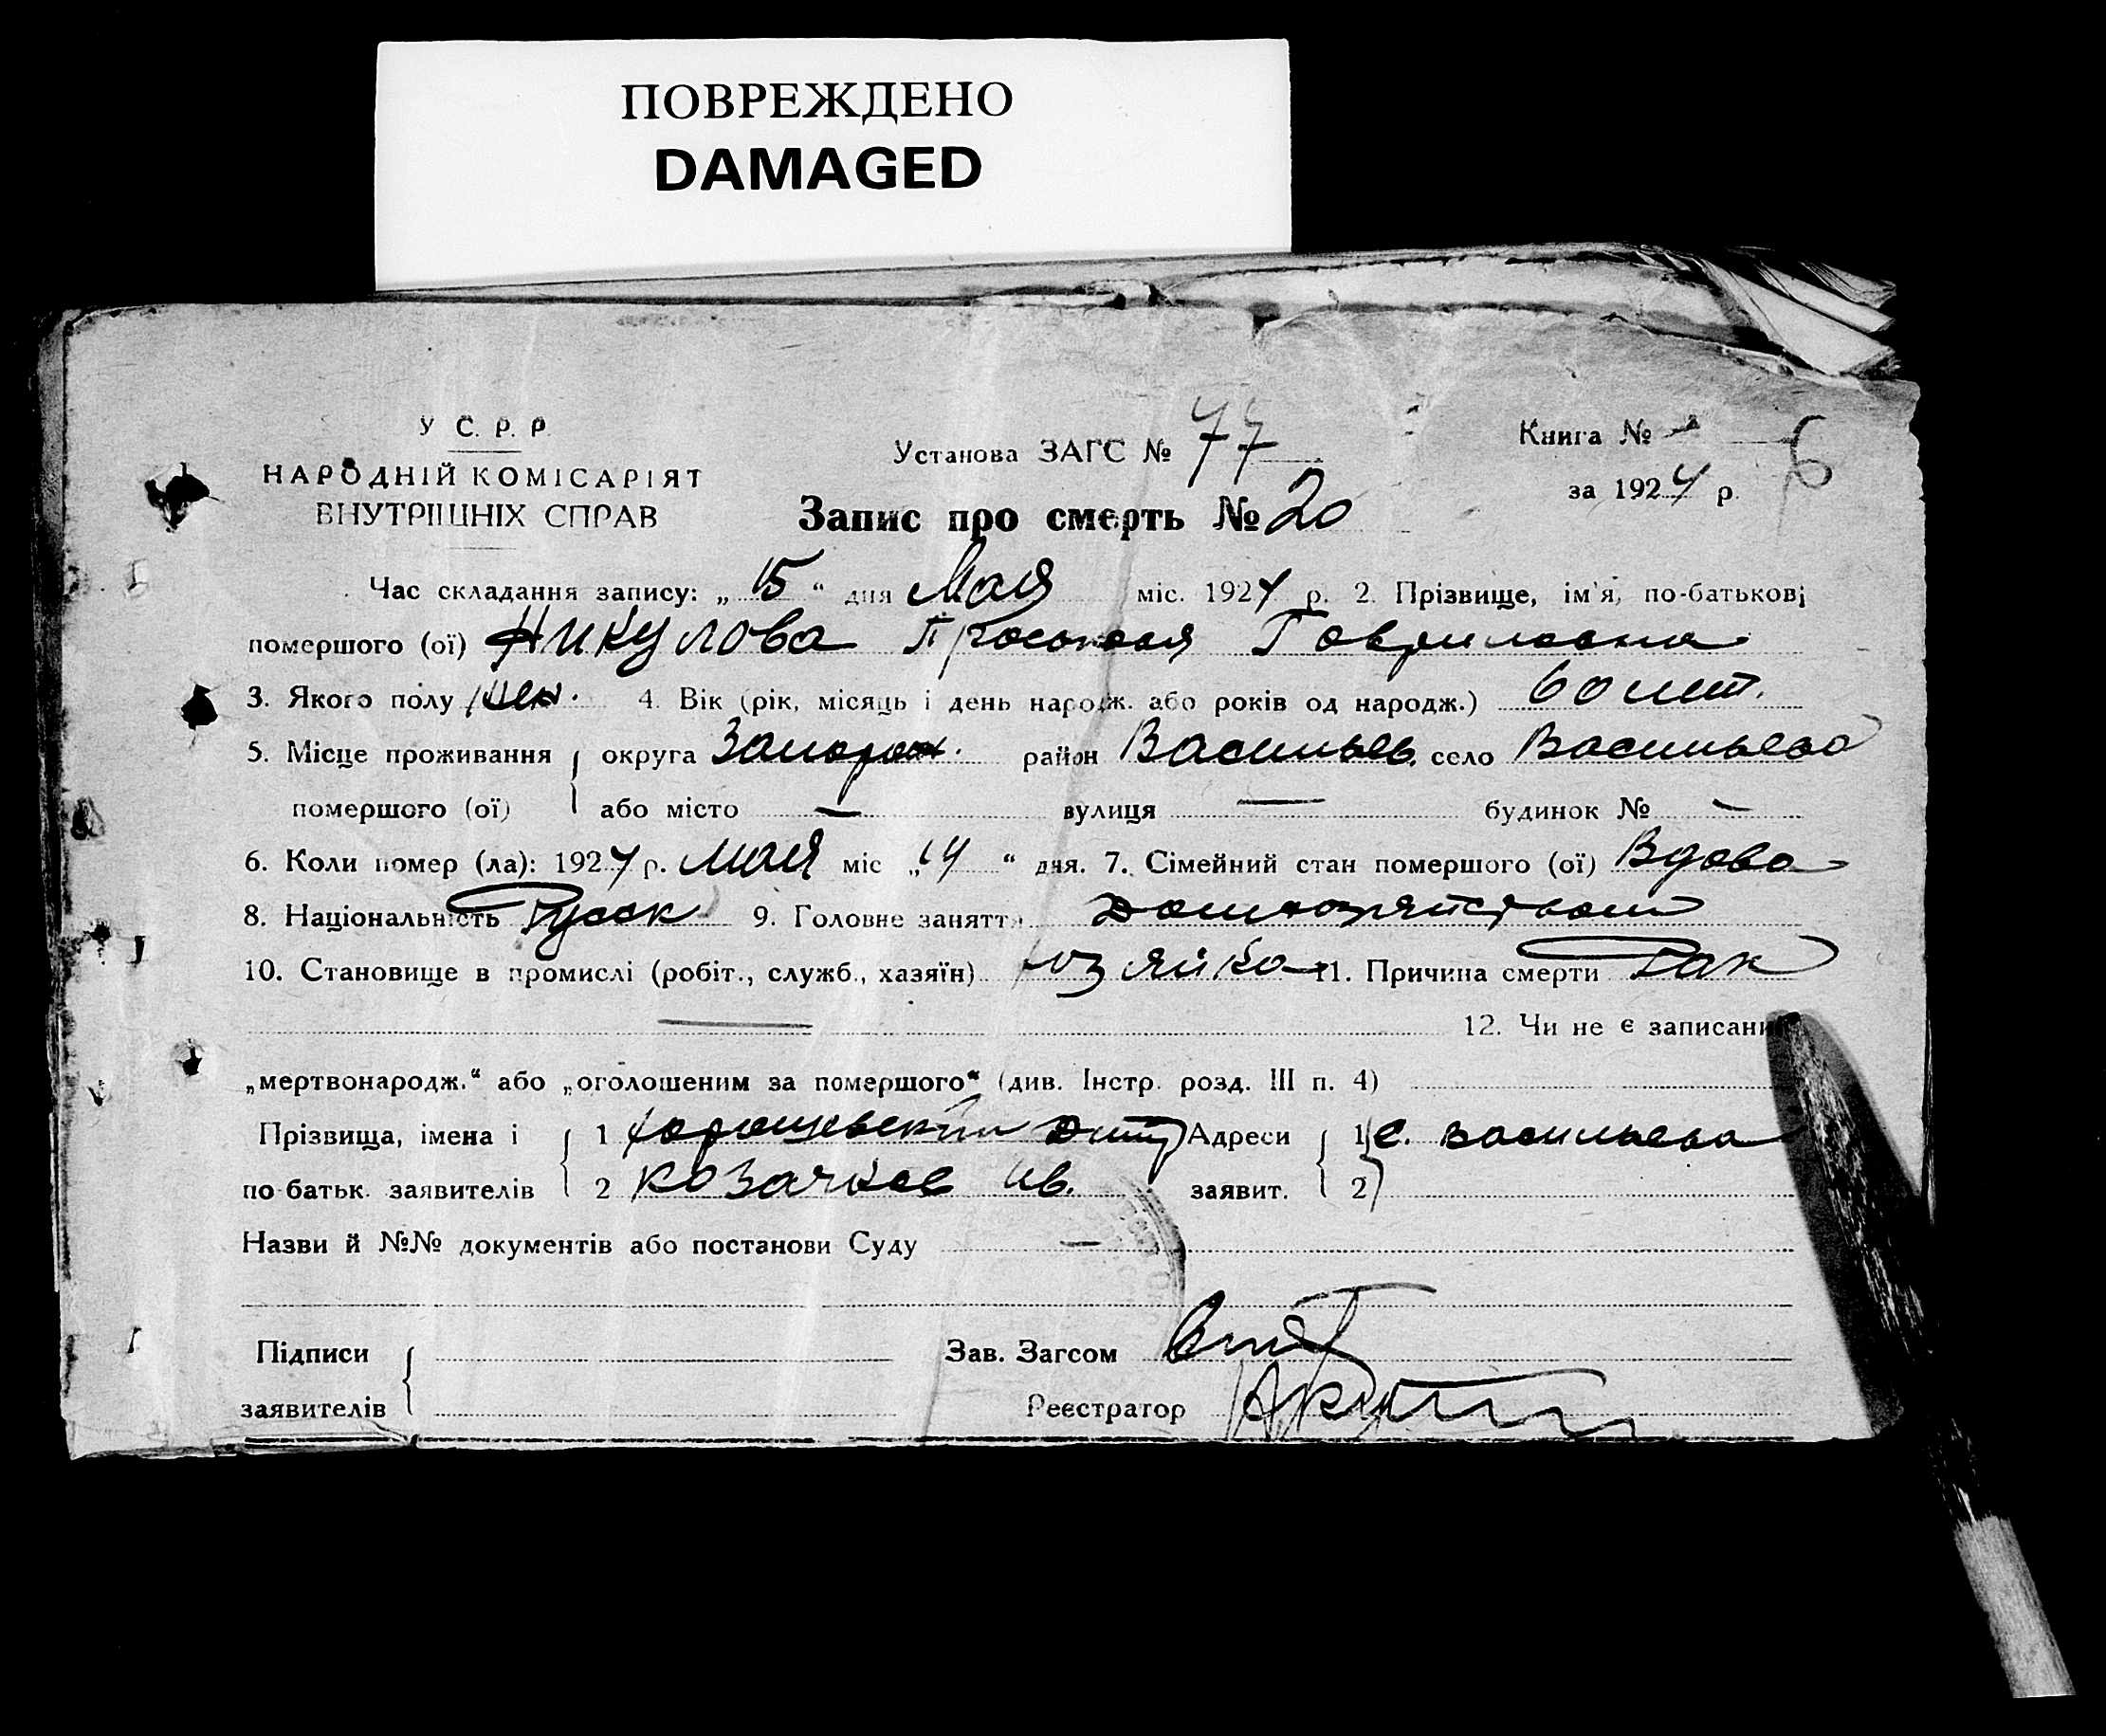 ПОВРЕЖДЕНО
DAMAGED
У С. Р. Р.
НАРОДНІЙ КОМІСАРІЯТ
ВНУТРІШНІХ СПРАВ
Установа ЗАГС № 77
Книга № 6
за 1924 р.
Запис про смерть № 20
Час складання запису: „ 15 “ дня Мая міс. 1924 р. 2. Прізвище, ім'я, по-батькові
помершого (ої) Никулова Просковья Гавриловна
3. Якого полу жен. 4. Вік (рік, місяць і день народж. або років од народж.) 60 лет.
5. Місце проживання округа Запорож. район Васильев. село Васильево
помершого (ої) або місто — вулиця — будинок № —
6. Коли помер (ла): 1924 р. мая міс „14 “ дня. 7. Сімейний стан помершого (ої) Вдова
8. Національність Русск 9. Головне заняття Домхозяйством
10. Становище в промислі (робіт., служб., хазяїн) хозяйка 11. Причина смерти Рак
— 12. Чи не є записаний
„мертвонародж.“ або „оголошеним за помершого“ (див. Інстр. розд. III п. 4)
Прізвища, імена і 1 Дмит Адреси 1 с. Васильева
по-батьк. заявителів 2 Козачков Ив. заявит. 2
Назви й №№ документів або постанови Суду —
Підписи Зав. Загсом
заявителів Реєстратор